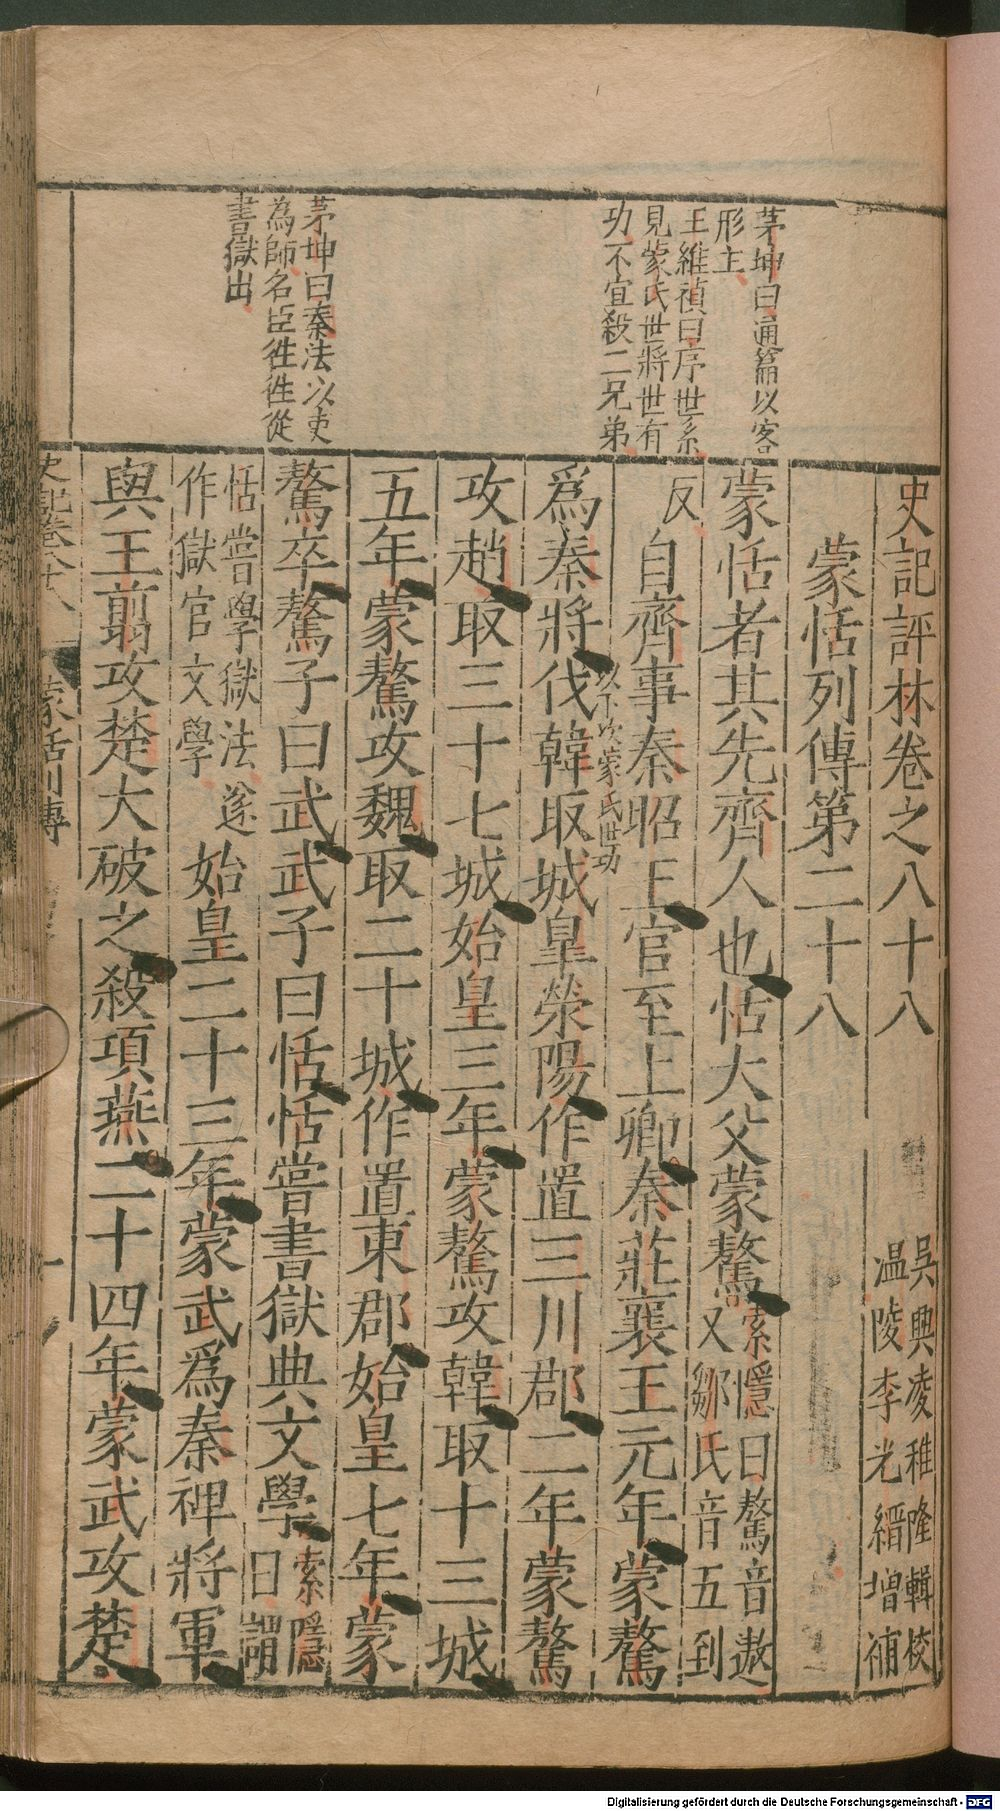 史記評林卷之八十八
吳興凌稚隆輯校
温陵李光縉增補
蒙恬列傳第二十八
茅坤曰通篇以客
形主
王維禎曰序世系
見蒙氏世將世有
功不宜殺二兄弟
蒙恬者其先齊人也恬大父蒙驁
索隱曰驁音遨
又鄒氏音五到
反
自齊事秦昭王官至上卿秦莊襄王元年蒙驁
以下次蒙氏世功
爲秦將伐韓取城臯滎陽作置三川郡二年蒙驁
攻趙取三十七城始皇三年蒙驁攻韓取十三城
五年蒙驁攻魏取二十城作置東郡始皇七年蒙
茅坤曰秦法以吏
為師名臣徃徃從
書獄出
驁卒驁子曰武武子曰恬恬嘗書獄典文學
索隱
曰謂
恬嘗學獄法遂
作獄官文學
始皇二十三年蒙武爲秦裨將軍
與王翦攻楚大破之殺項燕二十四年蒙武攻楚
史記卷八十八
蒙恬列傳
一
Digitalisierung gefördert durch die Deutsche Forschungsgemeinschaft - DFG